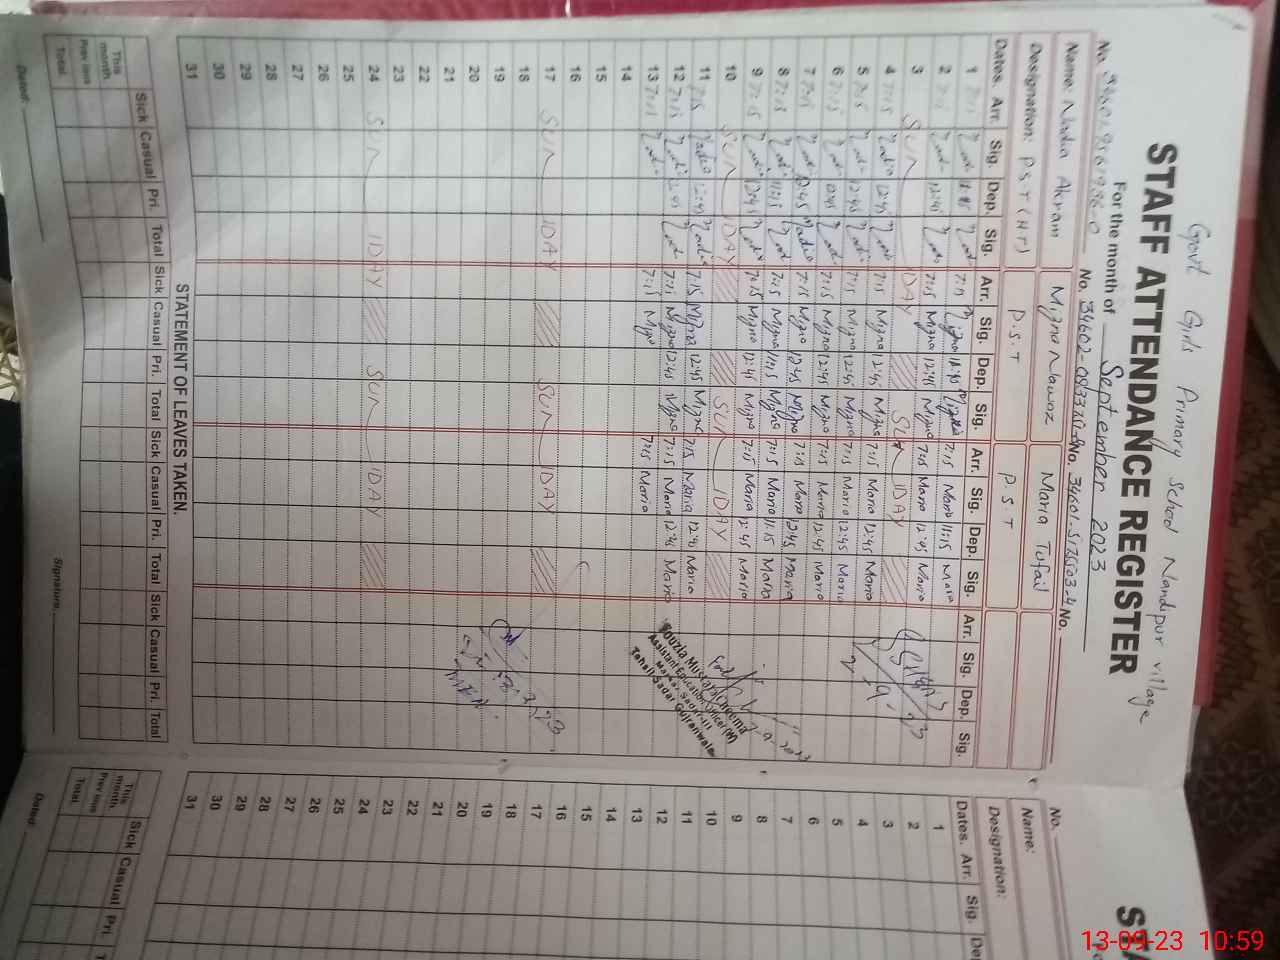 Govt Girls Primary School Nandipur village
STAFF ATTENDANCE REGISTER
For the month of September 2023
No. No. No. No.
Name: Nadia Akram Mizna Nawaz Maria Tufail
Designation: P.S.T (HT) P.S.T P.S.T
Dates. Arr. Sig. Dep. Sig. Arr. Sig. Dep. Sig. Arr. Sig. Dep. Sig. Arr. Sig. Dep. Sig.
1 7:15 7:15 Mizna 7:15 Maria 11:15 Maria
2 7:15 12:45 7:15 Mizna 12:45 Mizna 7:15 Maria 12:45 Maria
3 SUN IDAY SUN IDAY
4 7:15 Nadia 12:45 7:15 Mizna 12:45 Mizna 7:15 Maria 12:45 Maria
5 7:15 12:45 7:15 Mizna 12:45 Mizna 7:15 Maria 12:45 Maria
6 7:15 12:45 7:15 Mizna 12:45 Mizna 7:15 Maria 12:45 Maria
7 7:15 12:45 Nadia 7:15 Mizna 12:45 Mizna 7:15 Maria 12:45 Maria
8 7:15 11:15 7:15 Mizna 11:15 Mizna 7:15 Maria 11:15 Maria
9 7:15 12:45 7:15 Mizna 12:45 Mizna 7:15 Maria 12:45 Maria
10 SUN IDAY SUN IDAY
11 7:15 Nadia 12:45 Nadia 7:15 Mizna 12:45 Mizna 7:15 Maria 12:45 Maria
12 7:15 12:45 7:15 Mizna 12:45 Mizna 7:15 Maria 12:45 Maria
13 7:15 7:15 Mizna 7:15 Maria
14
15
16
17 SUN IDAY SUN IDAY
18
19
20
21
22
23
24 SUN IDAY SUN IDAY
25
26
27
28
29
30
31
Fouzia Mustafa Cheema
Assistant Education Officer (W)
Markaz Sadar-III
Tehsil Sadar Gujranwala
STATEMENT OF LEAVES TAKEN.
Sick Casual Pri. Total Sick Casual Pri. Total Sick Casual Pri. Total Sick Casual Pri. Total
This month
Previous
Total
Dated: Signature.
STA
No.
Name:
Designation:
Dates. Arr. Sig. De
1
2
3
4
5
6
7
8
9
10
11
12
13
14
15
16
17
18
19
20
21
22
23
24
25
26
27
28
29
30
31
Sick Casual Pri. T
This month
Previous
Total
Dated:
13-09-23 10:59